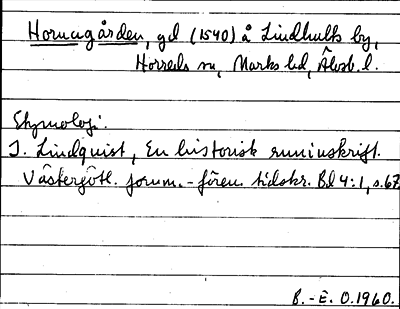 Hornugården, gd (1540) å Lindhults by,
Horreds sn, Marks hd, Älvsb. l.
Etymologi.
I. Lindquist, En historisk runinskrift.
Västergötl. fornm.-fören. tidskr. Bd 4:1, s.67
B.-E. O. 1960.